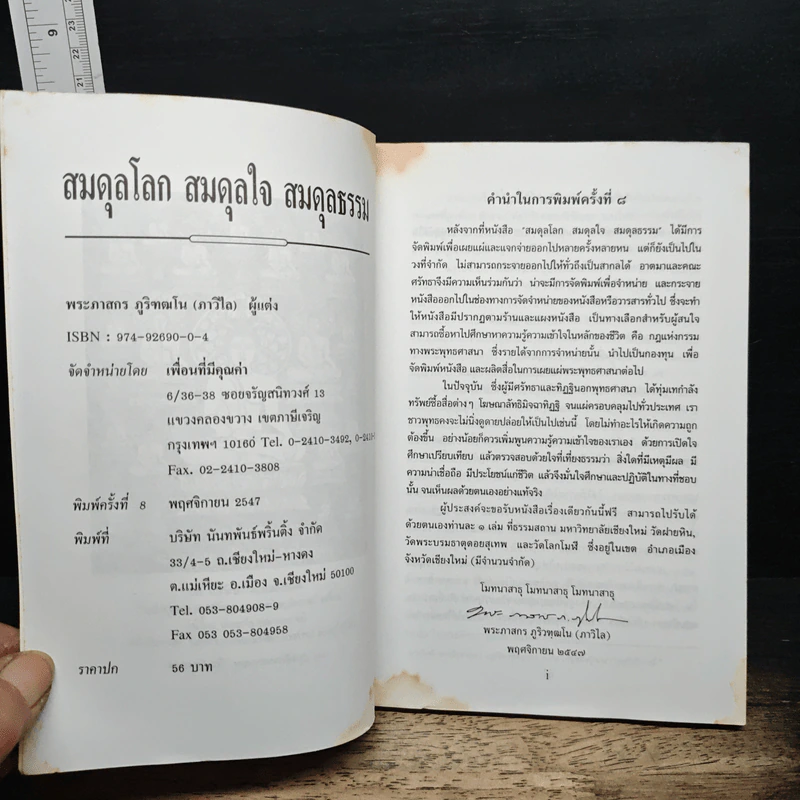 9
23
22
21
สมดุลโลก สมดุลใจ สมดุลธรรม
พระภาสกร ภูริวฑฺฒโน (ภาวิไล) ผู้แต่ง
ISBN : 974-92690-0-4
จัดจำหน่ายโดย เพื่อนที่มีคุณค่า
6/36-38 ซอยจรัญสนิทวงศ์ 13
แขวงคลองขวาง เขตภาษีเจริญ
กรุงเทพฯ 10160 Tel. 0-2410-3492,
Fax. 02-2410-3808
พิมพ์ครั้งที่ 8 พฤศจิกายน 2547
พิมพ์ที่ บริษัท นันทพันธ์พริ้นติ้ง จำกัด
33/4-5 ถ.เชียงใหม่-หางดง
ต.แม่เหียะ อ.เมือง จ.เชียงใหม่ 50100
Tel. 053-804908-9
Fax 053 053-804958
ราคาปก 56 บาท
คำนำในการพิมพ์ครั้งที่ ๘
หลังจากที่หนังสือ "สมดุลโลก สมดุลใจ สมดุลธรรม" ได้มีการ
จัดพิมพ์เพื่อเผยแผ่และแจกจ่ายออกไปหลายครั้งหลายหน แต่ก็ยังเป็นไปใน
วงที่จำกัด ไม่สามารถกระจายออกไปให้ทั่วถึงเป็นสากลได้ อาตมาและคณะ
ศรัทธาจึงมีความเห็นร่วมกันว่า น่าจะมีการจัดพิมพ์เพื่อจำหน่าย และกระจาย
หนังสือออกไปในช่องทางการจัดจำหน่ายของหนังสือหรือวารสารทั่วไป ซึ่งจะทำ
ให้หนังสือมีปรากฏตามร้านและแผงหนังสือ เป็นทางเลือกสำหรับผู้สนใจ
สามารถซื้อหาไปศึกษาหาความรู้ความเข้าใจในหลักของชีวิต คือ กฎแห่งกรรม
ทางพระพุทธศาสนา ซึ่งรายได้จากการจำหน่ายนั้น นำไปเป็นกองทุน เพื่อ
จัดพิมพ์หนังสือ และผลิตสื่อในการเผยแผ่พระพุทธศาสนาต่อไป
ในปัจจุบัน ซึ่งผู้มีศรัทธาและทิฏฐินอกพุทธศาสนา ได้ทุ่มเทกำลัง
ทรัพย์ซื้อสื่อต่างๆ โฆษณาลัทธิมิจฉาทิฏฐิ จนแผ่ครอบคลุมไปทั่วประเทศ เรา
ชาวพุทธคงจะไม่นิ่งดูดายปล่อยให้เป็นไปเช่นนี้ โดยไม่ทำอะไรให้เกิดความถูก
ต้องขึ้น อย่างน้อยก็ควรเพิ่มพูนความรู้ความเข้าใจของเราเอง ด้วยการเปิดใจ
ศึกษาเปรียบเทียบ แล้วตรวจสอบด้วยใจที่เที่ยงธรรมว่า สิ่งใดที่มีเหตุมีผล มี
ความน่าเชื่อถือ มีประโยชน์แก่ชีวิต แล้วจึงมั่นใจศึกษาและปฏิบัติในทางที่ชอบ
นั้น จนเห็นผลด้วยตนเองอย่างแท้จริง
ผู้ประสงค์จะขอรับหนังสือเรื่องเดียวกันนี้ฟรี สามารถไปรับได้
ด้วยตนเองท่านละ ๑ เล่ม ที่ธรรมสถาน มหาวิทยาลัยเชียงใหม่ วัดฝายหิน,
วัดพระบรมธาตุดอยสุเทพ และวัดโลกโมฬี ซึ่งอยู่ในเขต อำเภอเมือง
จังหวัดเชียงใหม่ (มีจำนวนจำกัด)
โมทนาสาธุ โมทนาสาธุ โมทนาสาธุ
พระภาสกร ภูริวฑฺฒโน (ภาวิไล)
พฤศจิกายน ๒๕๔๗
i